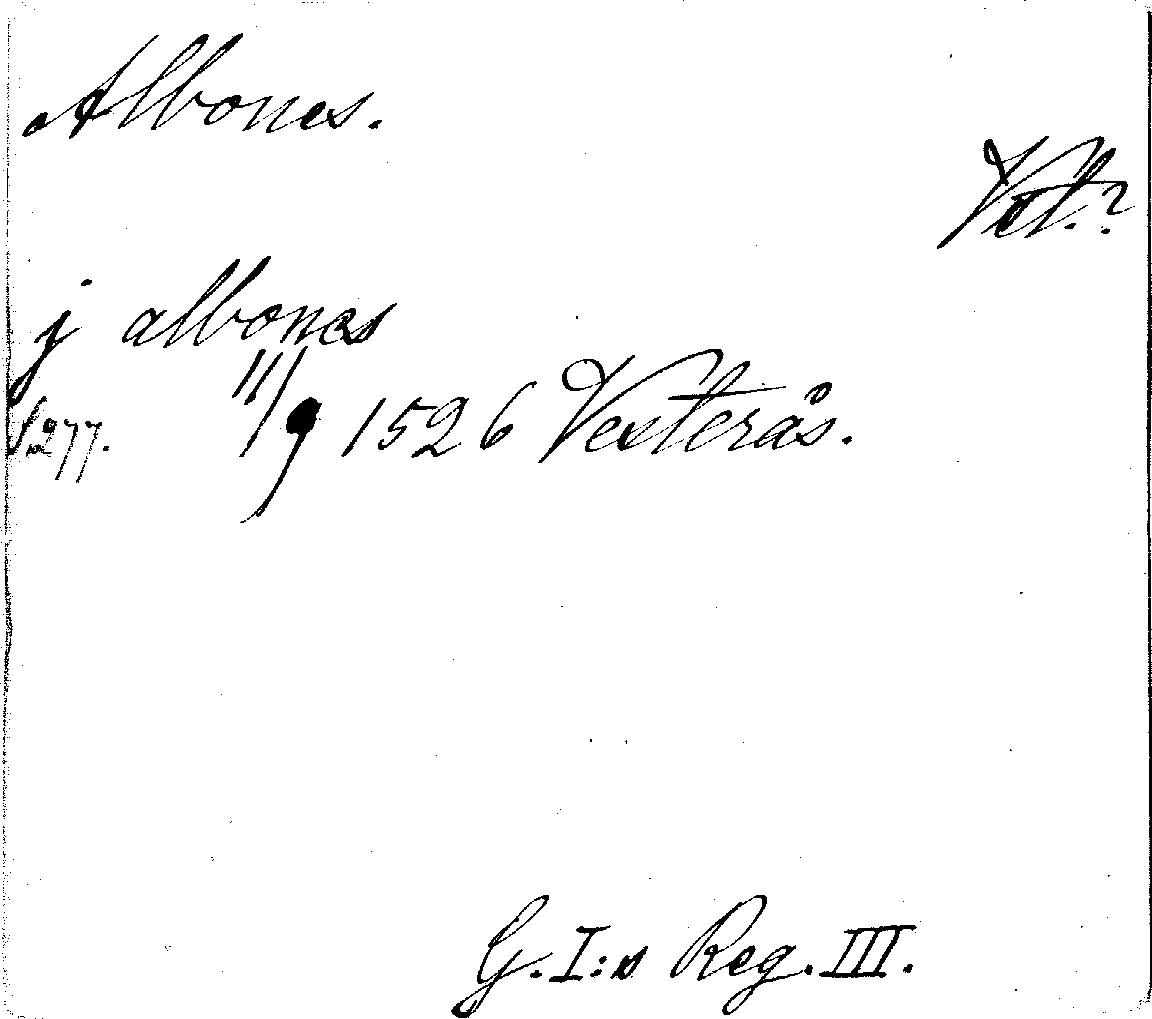 Albones.
Vstl.?
j albones
S. 277. 11/9 1526 Vesterås.
G. I:s Reg. III.